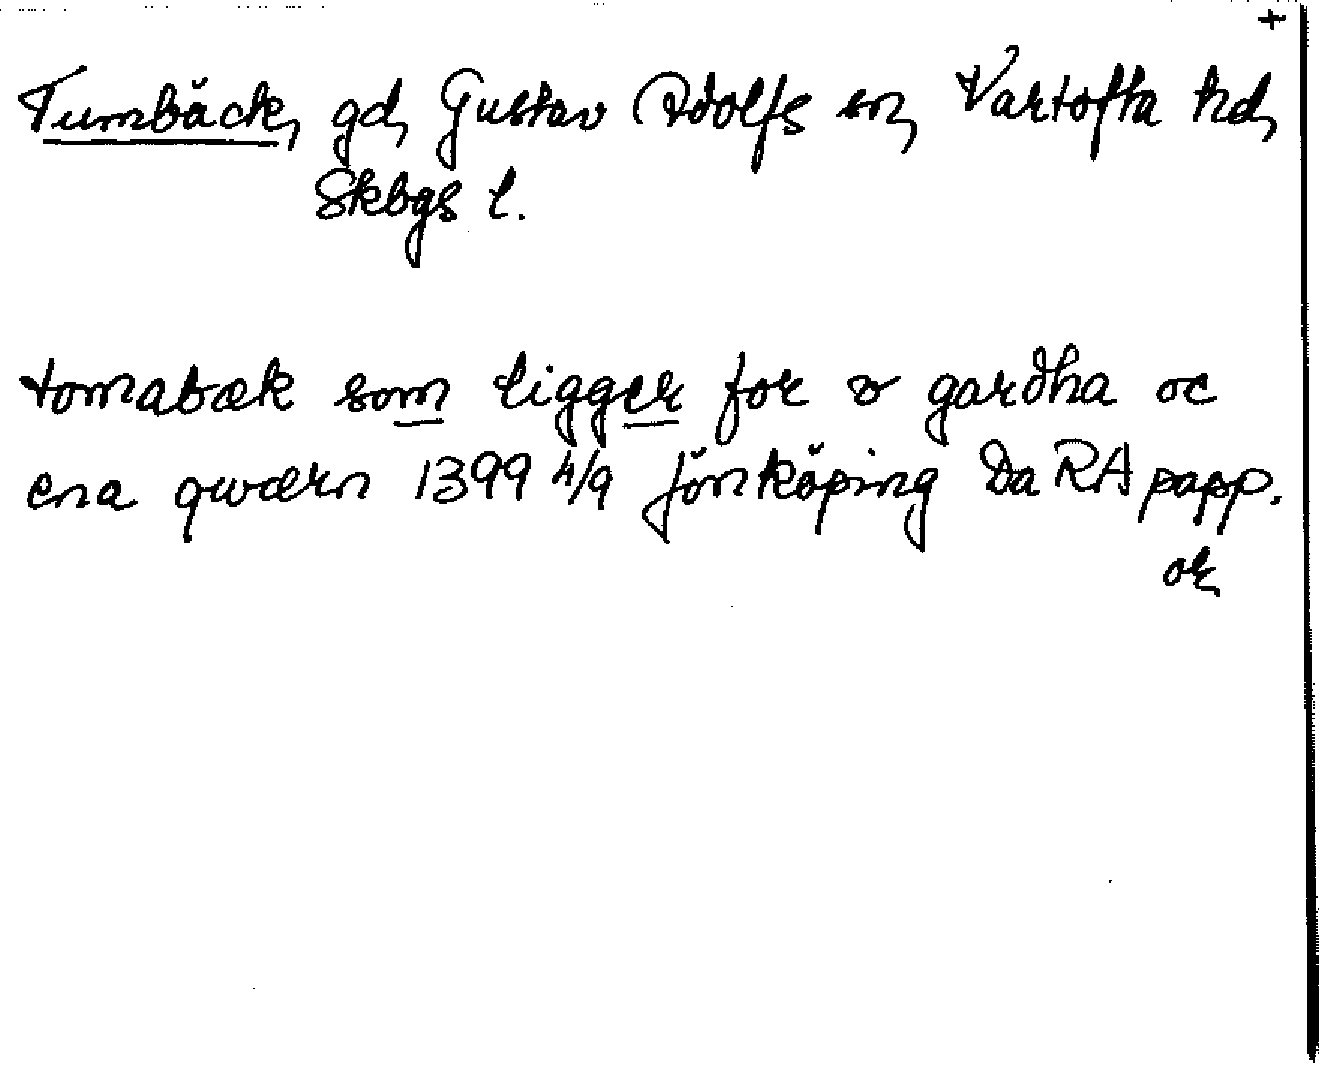 +
Tumbäck, gd, Gustav Adolfs sn, Vartofta hd,
Skbgs l.
tomabæk som ligger for v gardha oc
ena qwærn 1399 4/9 Jönköping Da RA papp.
or